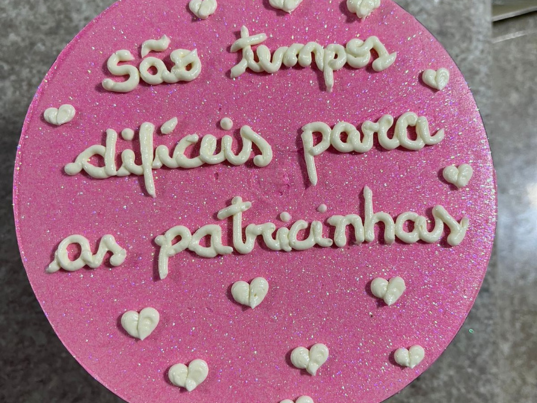 São tempos
difíceis para
as patricinhas